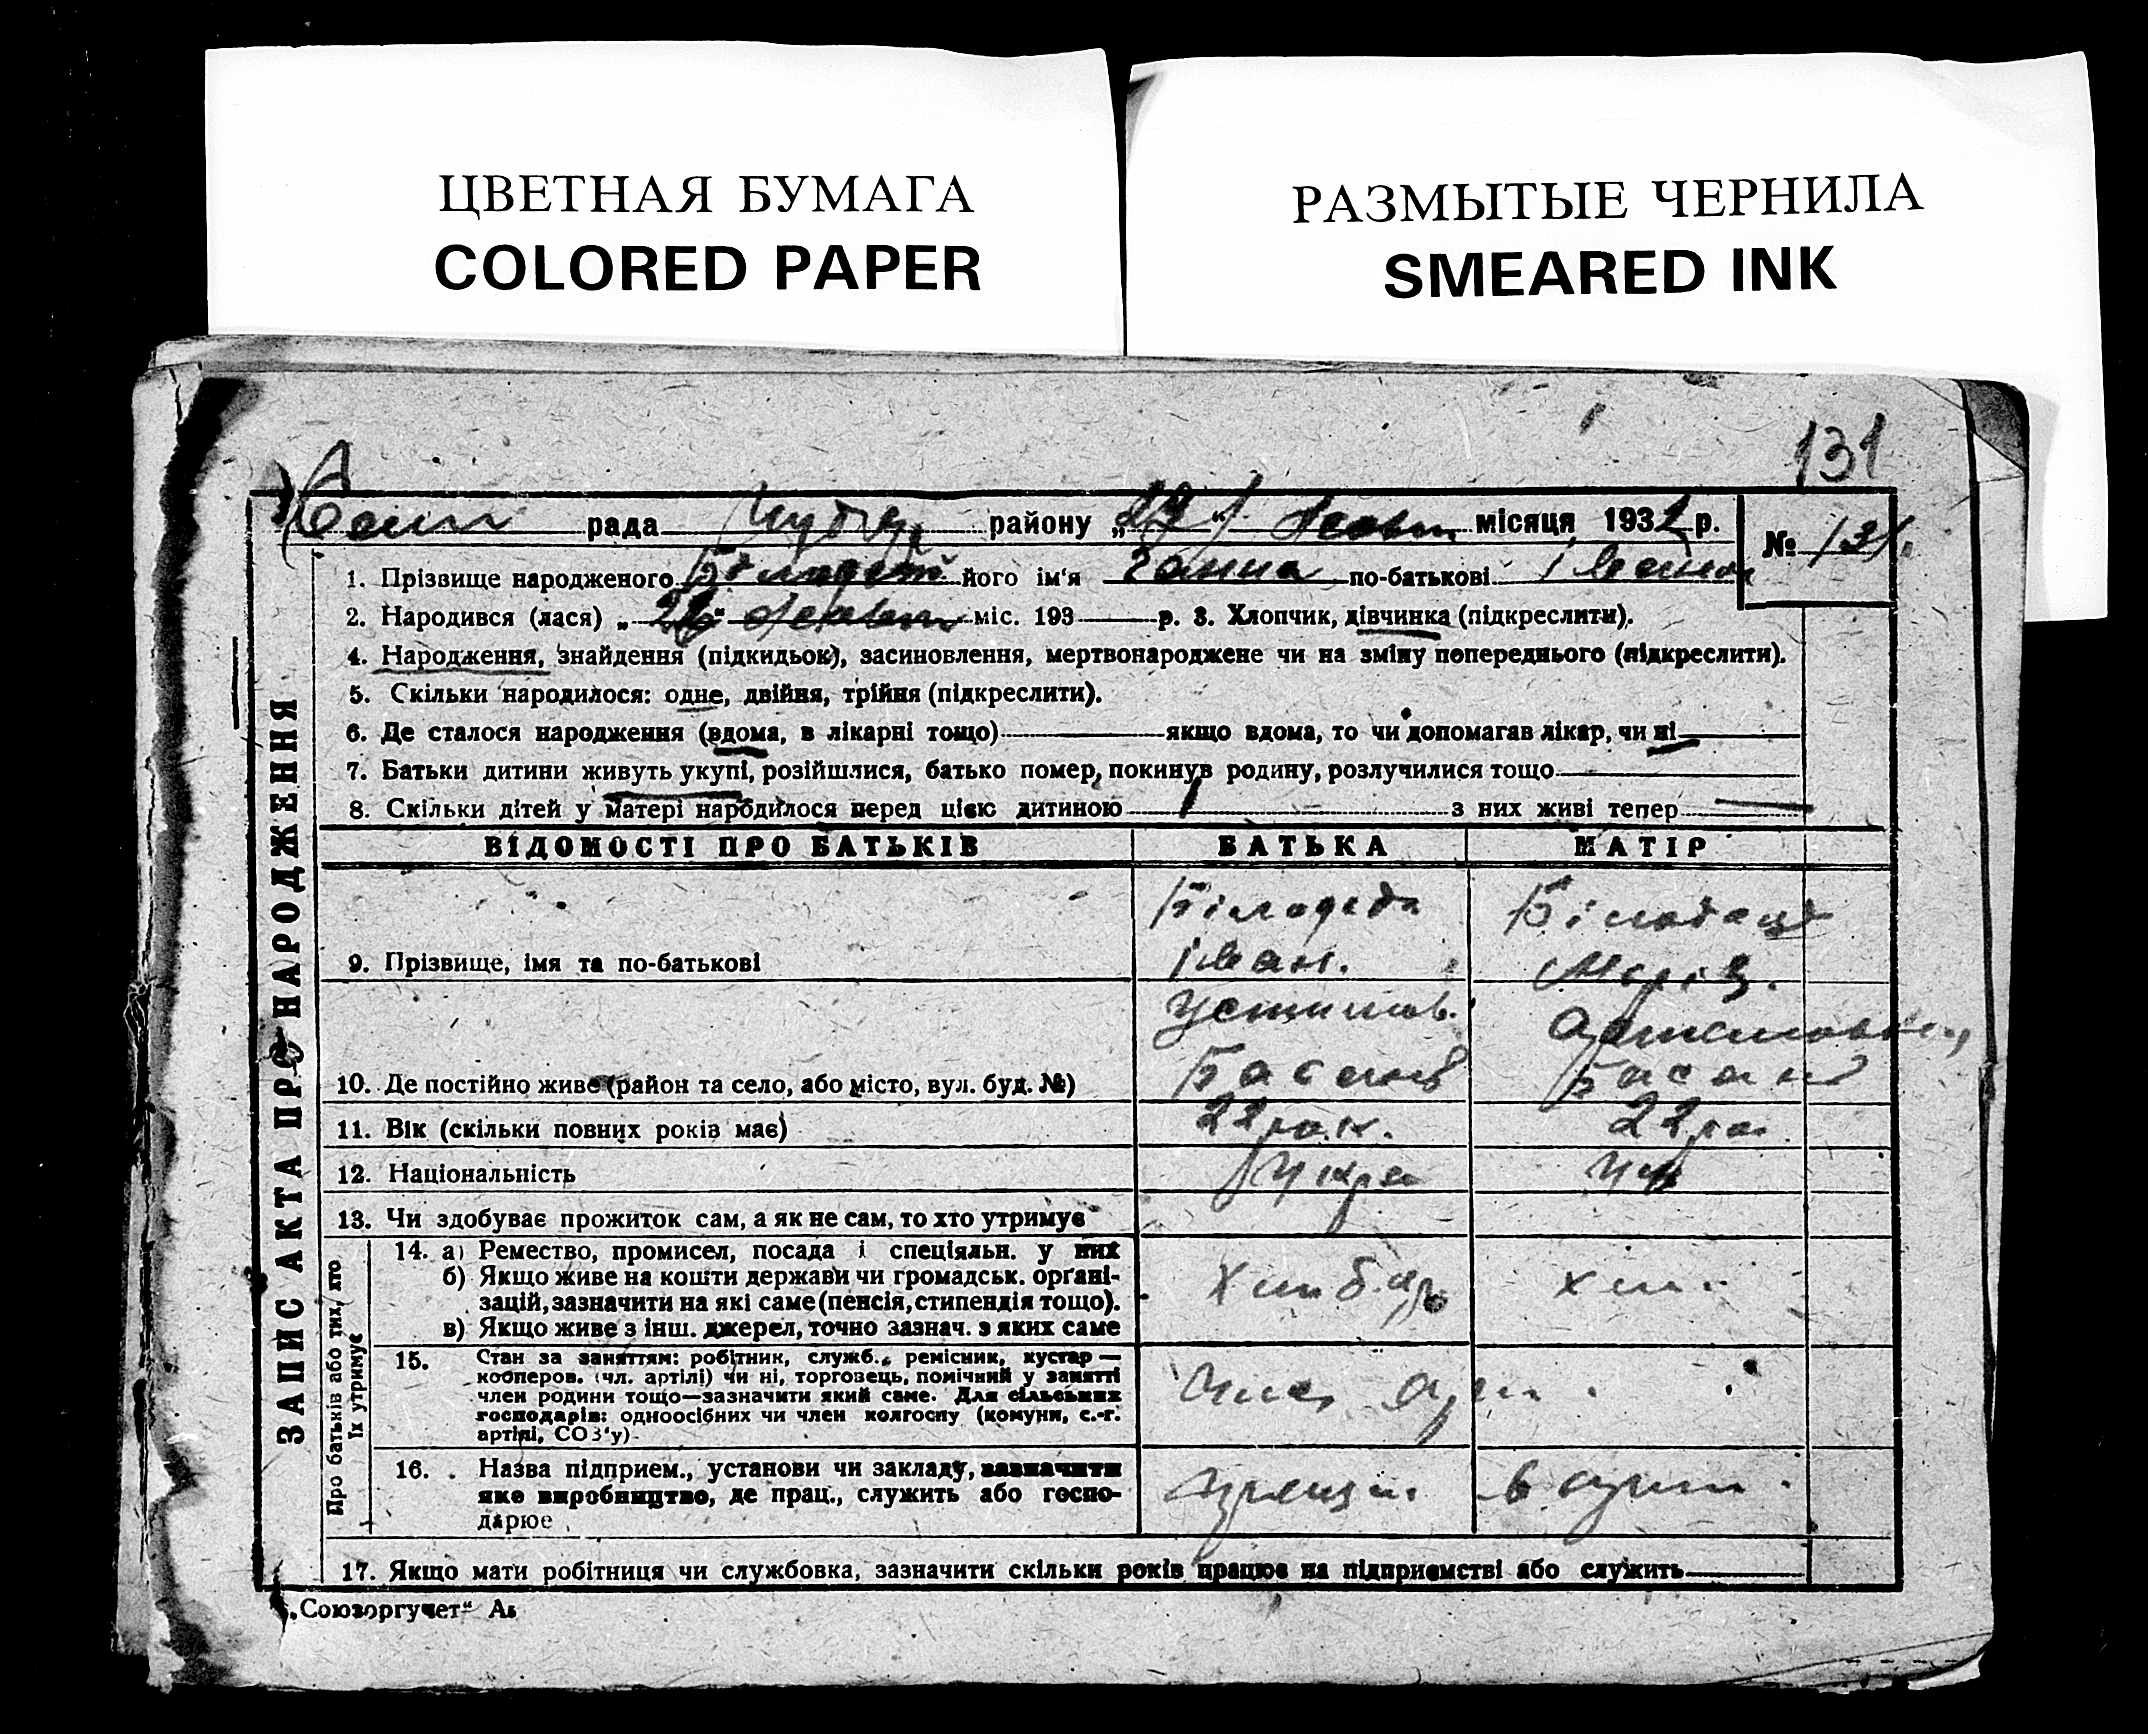 ЦВЕТНАЯ БУМАГА
COLORED PAPER
РАЗМЫТЫЕ ЧЕРНИЛА
SMEARED INK
131
рада району „22“ місяця 1932 р.
№ 131.
1. Прізвище народженого його ім'я Ганна по-батькові
2. Народився (лася) „ “ міс. 193 р. 3. Хлопчик, дівчинка (підкреслити).
4. Народження, знайдення (підкидьок), засиновлення, мертвонароджене чи на зміну попереднього (підкреслити).
5. Скільки народилося: одне, двійня, трійня (підкреслити).
6. Де сталося народження (вдома, в лікарні тощо) якщо вдома, то чи допомагав лікар, чи ні
7. Батьки дитини живуть укупі, розійшлися, батько помер, покинув родину, розлучилися тощо
8. Скільки дітей у матері народилося перед цією дитиною 1 з них живі тепер
ЗАПИС АКТА ПРО НАРОДЖЕННЯ
ВІДОМОСТІ ПРО БАТЬКІВ БАТЬКА МАТІР
Білодід
Іван. Марія.
9. Прізвище, імя та по-батькові
Устимов.
10. Де постійно живе (район та село, або місто, вул. буд. №) Басань Басань
11. Вік (скільки повних років має) 22 рок. 22 ро
12. Національність Укра Ук
13. Чи здобуває прожиток сам, а як не сам, то хто утримує
Про батьків або тих, хто їх утримує
14. а) Ремество, промисел, посада і спеціяльн. у них
б) Якщо живе на кошти держави чи громадськ. органі-
зацій, зазначити на які саме (пенсія, стипендія тощо).
в) Якщо живе з інш. джерел, точно зазнач. з яких саме
Хліб. хліб
15. Стан за заняттям: робітник, служб., ремісник, кустар —
кооперов. (чл. артілі) чи ні, торговець, помічний у занятті
член родини тощо—зазначити який саме. Для сільських
господарів: одноосібних чи член колгоспу (комуни, с.-г.
артілі, СОЗ'у)
Член арт.
16. Назва підприєм., установи чи закладу, зазначити
яке виробництво, де прац., служить або госпо-
дарює
в арт.
17. Якщо мати робітниця чи службовка, зазначити скільки років працює на підприємстві або служить
„Союзоргучет“